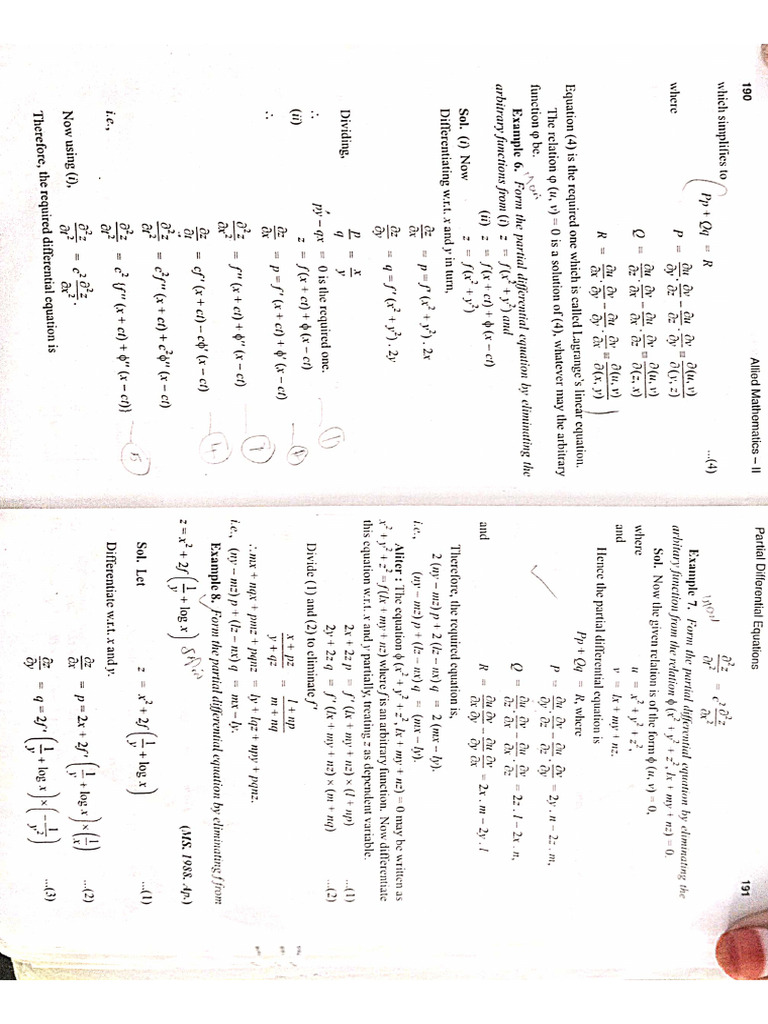 190 Allied Mathematics – II
which simplifies to
Pp + Qq = R ...(4)
where P = ∂u/∂y · ∂v/∂z – ∂u/∂z · ∂v/∂y = ∂(u, v)/∂(y, z)
Q = ∂u/∂z · ∂v/∂x – ∂u/∂x · ∂v/∂z = ∂(u, v)/∂(z, x)
R = ∂u/∂x · ∂v/∂y – ∂u/∂y · ∂v/∂x = ∂(u, v)/∂(x, y)
Equation (4) is the required one which is called Lagrange's linear equation.
The relation φ (u, v) = 0 is a solution of (4), whatever may the arbitrary
function φ be.
Example 6. Form the partial differential equation by eliminating the
arbitrary functions from (i) z = f(x² + y²) and
(ii) z = f(x + ct) + ϕ (x – ct)
Sol. (i) Now z = f(x² + y²)
Differentiating w.r.t. x and y in turn,
∂z/∂x = p = f' (x² + y²) . 2x
∂z/∂y = q = f' (x² + y²) . 2y
Dividing, p/q = x/y
∴ py – qx = 0 is the required one.
(ii) z = f (x + ct) + ϕ (x – ct)
∴ ∂z/∂x = p = f' (x + ct) + ϕ' (x – ct)
∂²z/∂x² = f'' (x + ct) + ϕ'' (x – ct)
∂z/∂t = cf' (x + ct) – cϕ' (x – ct)
∂²z/∂t² = c²f'' (x + ct) + c²ϕ'' (x – ct)
i.e., ∂²z/∂t² = c² {f'' (x + ct) + ϕ'' (x – ct)}
Now using (i), ∂²z/∂t² = c² ∂²z/∂x².
Therefore, the required differential equation is
Partial Differential Equations 191
∂²z/∂t² = c² ∂²z/∂x²
Example 7. Form the partial differential equation by eliminating the
arbitary function from the relation ϕ (x² + y² + z², lx + my + nz) = 0.
Sol. Now the given relation is of the form ϕ (u, v) = 0,
where u = x² + y² + z²,
and v = lx + my + nz.
Hence the partial differential equation is
Pp + Qq = R, where
P = ∂u/∂y · ∂v/∂z – ∂u/∂z · ∂v/∂y = 2y . n – 2z . m,
Q = ∂u/∂z · ∂v/∂x – ∂u/∂x · ∂v/∂z = 2z . l – 2x . n,
and R = ∂u/∂x ∂v/∂y – ∂u/∂y ∂v/∂x = 2x . m – 2y . l
Therefore, the required equation is,
2 (ny – mz) p + 2 (lz – nx) q = 2 (mx – ly).
i.e., (ny – mz) p + (lz – nx) q = (mx – ly).
Aliter : The equation ϕ (x² + y² + z², lx + my + nz) = 0 may be written as
x² + y² + z² = f(lx + my + nz) where f is an arbitrary function. Now differentiate
this equation w.r.t. x and y partially, treating z as dependent variable.
2x + 2z p = f' (lx + my + nz) × (l + np) ...(1)
2y + 2z q = f' (lx + my + nz) × (m + nq) ...(2)
Divide (1) and (2) to eliminate f'
x + pz/y + qz = l + np/m + nq
∴ mx + nqx + pmz + pqnz = ly + lqz + npy + pqnz.
i.e., (ny – mz) p + (lz – nx) q = mx – ly.
Example 8. Form the partial differential equation by eliminating f from
z = x² + 2f (1/y + log x) (MS. 1988. Ap.)
Sol. Let z = x² + 2f (1/y + log x) ...(1)
Differentiate w.r.t. x and y.
∂z/∂x = p = 2x + 2f' (1/y + log x) × (1/x) ...(2)
∂z/∂y = q = 2f' (1/y + log x) × (– 1/y²) ...(3)